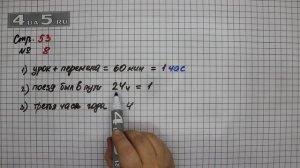 4DA5.RU
Стр. 53
№ 8
1) урок + перемена = 60 мин = 1 час
2) поезд был в пути 24ч = 1
3) третья часть года 4